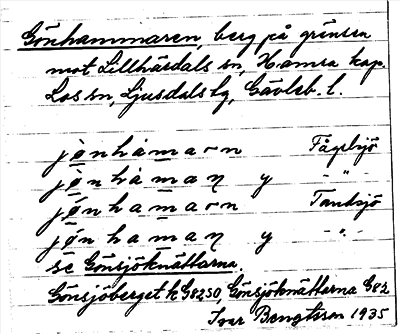 Gönhammaren, berg på gränsen
mot Lillhärdals sn, Hamra kap.
Los sn, Ljusdals tg, Gävleb. l.
jọ̈nhàmarn Fågelsjö
jọ̈nhàmaṇ y - " -
jọ̈nhamarn Tandsjö
jọ̈nhamaṇ y - " -
se Gönsjöknättarna.
Gönsjöberget k G8250, Gönsjöknättarna G82
Ivar Bengtsson 1935